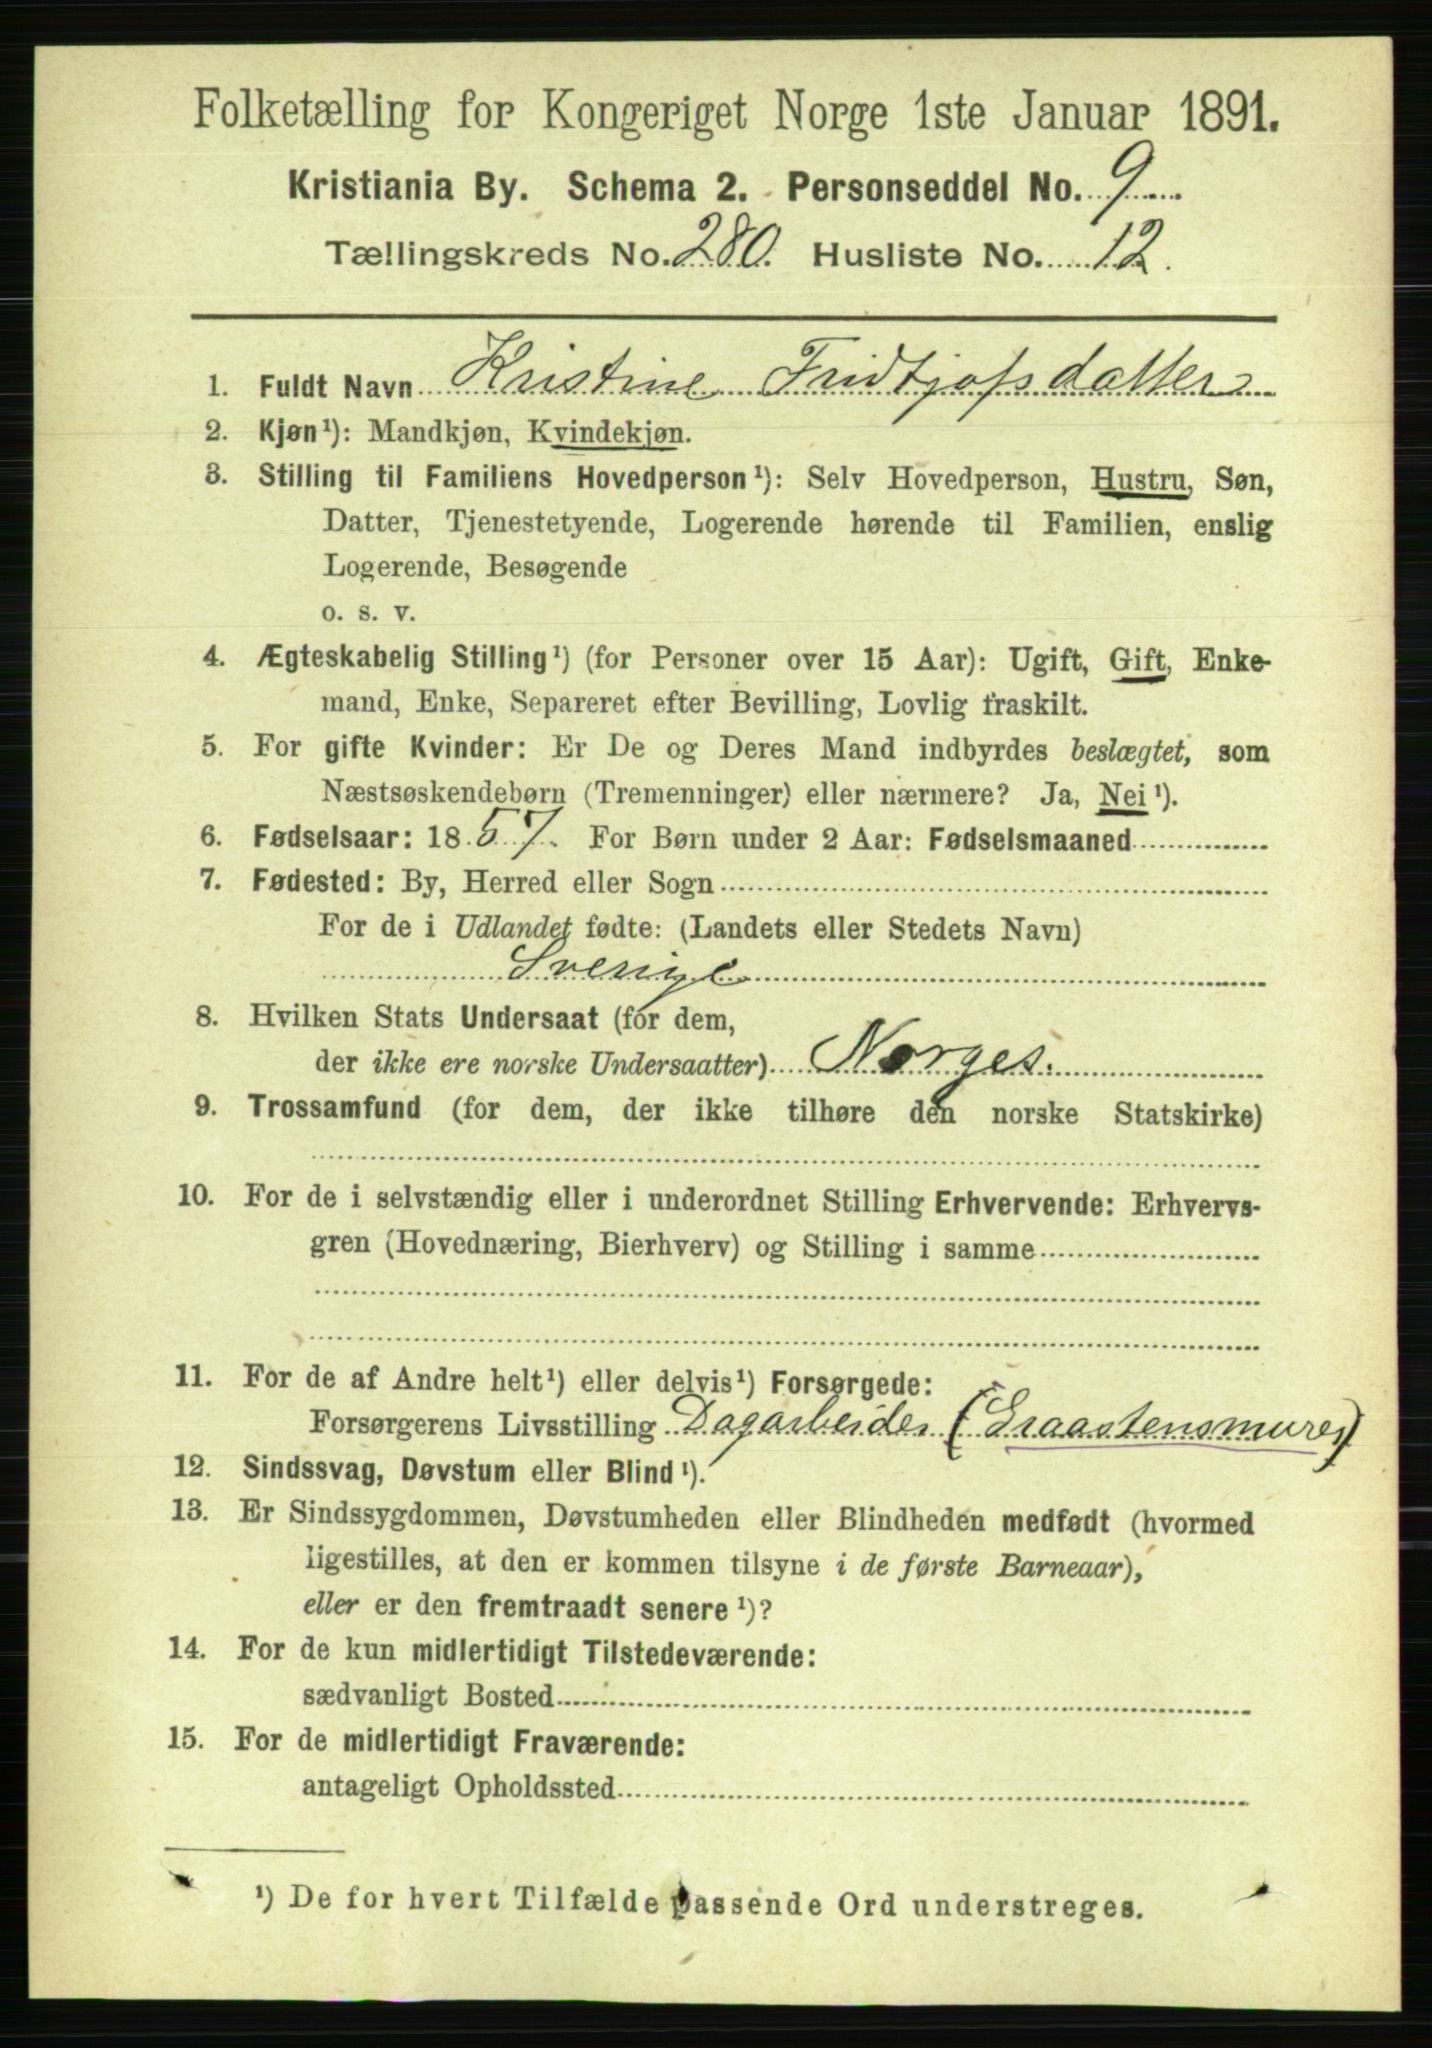 Folketælling for Kongeriget Norge 1ste Januar 1891.
Kristiania By. Schema 2. Personseddel No. 9
Tællingskreds No. 280. Husliste No. 12.
1. Fuldt Navn Kristine Fridtjofsdatter
2. Kjøn¹): Mandkjøn, Kvindekjøn.
3. Stilling til Familiens Hovedperson¹): Selv Hovedperson, Hustru, Søn,
Datter, Tjenestetyende, Logerende hørende til Familien, enslig
Logerende, Besøgende
o. s. v.
4. Ægteskabelig Stilling¹) (for Personer over 15 Aar): Ugift, Gift, Enke-
mand, Enke, Separeret efter Bevilling, Lovlig fraskilt.
5. For gifte Kvinder: Er De og Deres Mand indbyrdes beslægtet, som
Næstsøskendebørn (Tremenninger) eller nærmere? Ja, Nei¹).
6. Fødselsaar: 1857. For Børn under 2 Aar: Fødselsmaaned
7. Fødested: By, Herred eller Sogn
For de i Udlandet fødte: (Landets eller Stedets Navn)
Sverige
8. Hvilken Stats Undersaat (for dem,
der ikke ere norske Undersaatter) Norges.
9. Trossamfund (for dem, der ikke tilhøre den norske Statskirke)
10. For de i selvstændig eller i underordnet Stilling Erhvervende: Erhvervs-
gren (Hovednæring, Bierhverv) og Stilling i samme
11. For de af Andre helt¹) eller delvis¹) Forsørgede:
Forsørgerens Livsstilling Dagarbeider (Graastensmurer)
12. Sindssvag, Døvstum eller Blind¹).
13. Er Sindssygdommen, Døvstumheden eller Blindheden medfødt (hvormed
ligestilles, at den er kommen tilsyne i de første Barneaar),
eller er den fremtraadt senere¹)?
14. For de kun midlertidigt Tilstedeværende:
sædvanligt Bosted
15. For de midlertidigt Fraværende:
antageligt Opholdssted
¹) De for hvert Tilfælde passende Ord understreges.